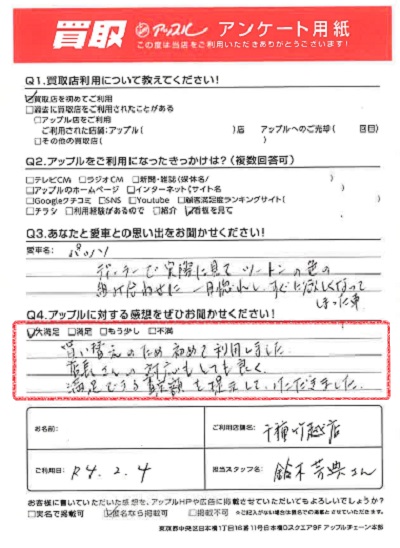 買取 アップル アンケート用紙
この度は当店をご利用いただきありがとうございます!
Q1.買取店利用について教えてください!
☑買取店を初めてご利用
□過去に買取店をご利用されたことがある
□アップル店をご利用
ご利用された店舗:アップル( )店 アップルへのご売却( 回目)
□その他の買取店( )
Q2.アップルをご利用になったきっかけは?(複数回答可)
□テレビCM □ラジオCM □新聞・雑誌(媒体名/ )
□アップルのホームページ □インターネット(サイト名 )
□Googleクチコミ □SNS □Youtube □顧客満足度ランキングサイト( )
□チラシ □利用経験があるので □紹介 ☑看板を見て
Q3.あなたと愛車との思い出をお聞かせください!
愛車名:パッソ
ディーラーで実際に見てツートンの色の
組み合わせに一目惚れし、すぐに欲しくなって
しまった車
Q4.アップルに対する感想をぜひお聞かせください!
☑大満足 □満足 □もう少し □不満
買い替えのため初めて利用しました。
店長さんの対応もとても良く、
満足できる買取額を提示していただきました。
お名前: ご利用店舗名: 千種竹越店
ご利用日: R4.2.4 担当スタッフ名: 鈴木芳典さん
お客様に書いていただいた感想を、アップルHPや広告に掲載させていただいてもよろしいでしょうか?
□実名で掲載可 ☑匿名なら掲載可 □掲載不可 ※ご記入がない場合は匿名での掲載とさせていただきます。
東京都中央区日本橋1丁目16番11号日本橋Dスクエア8F アップルチェーン本部